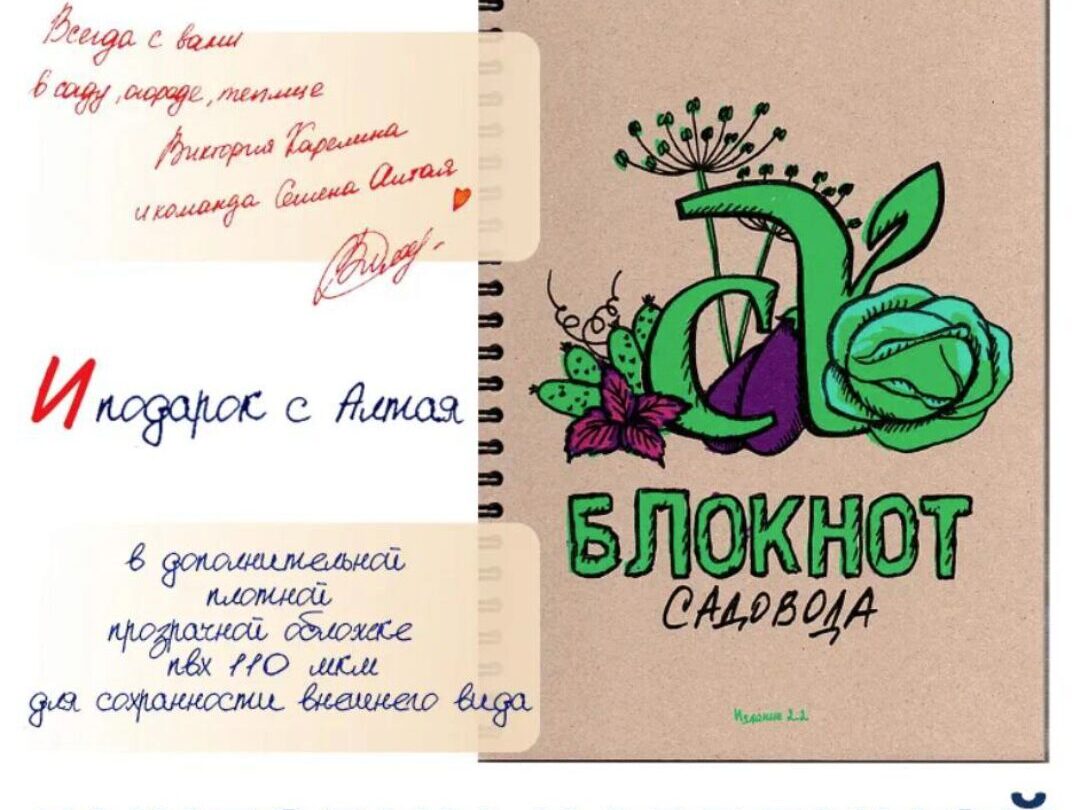 Всегда с вами
в саду, огороде, теплице
Виктория Карелина
и команда Семена Алтая
И подарок с Алтая
в дополнительной
плотной
прозрачной обложке
пвх 110 мкм
для сохранности внешнего вида
са
БЛОКНОТ
САДОВОДА
Издание 2.2